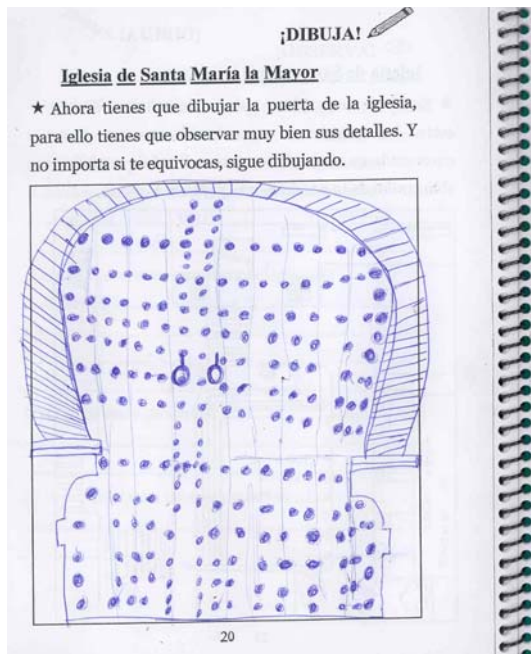 ¡DIBUJA!
Iglesia de Santa María la Mayor
★ Ahora tienes que dibujar la puerta de la iglesia,
para ello tienes que observar muy bien sus detalles. Y
no importa si te equivocas, sigue dibujando.
20